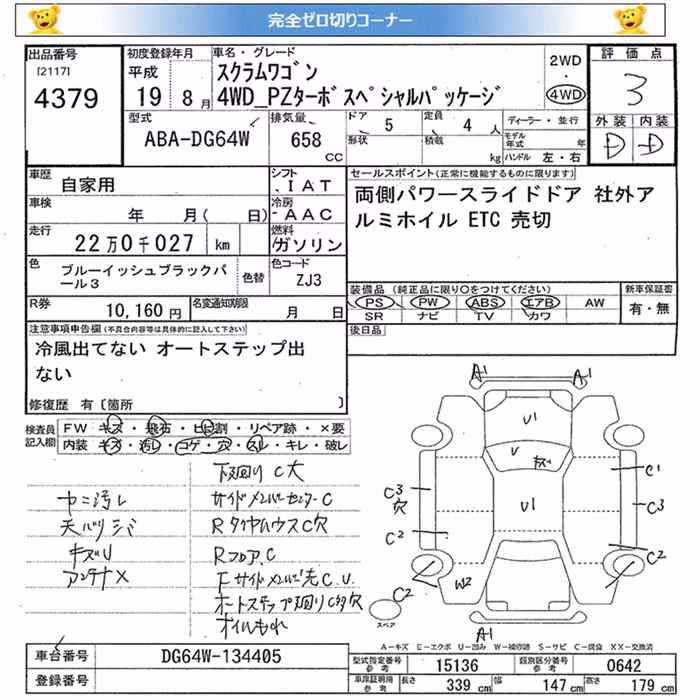 完全ゼロ切りコーナー
出品番号
[2117]
4379
初度登録年月
平成
19 8月
車名・グレード
スクラムワゴン
4WD_PZターボスペシャルパッケージ
2WD
4WD
評価点
3
外装 内装
D D
型式
ABA-DG64W
排気量
658
CC
ドア 5
形状
定員 4 人
積載 kg
ディーラー・並行
モデル年式 年
ハンドル 左・右
車歴
自家用
シフト
IAT
車検
年 月( 日)
冷房
AAC
走行
22万0千027 km
燃料
ガソリン
色
ブルーイッシュブラックパール3
色替
色コード
ZJ3
R券
10,160円
名変通知期限
月 日
セールスポイント(正常に機能するものに限ります)
両側パワースライドドア 社外ア
ルミホイル ETC 売切
装備品 (純正品に限り○をつけてください)
PS PW ABS エアB AW
SR ナビ TV カワ
新車保証書
有・無
後日品
注意事項申告欄(不具合内容等は具体的に記入して下さい)
冷風出てない オートステップ出
ない
修復歴 有〔箇所 〕
検査員記入欄
FW キズ・飛石・ヒビ割・リペア跡・×要
内装 キズ・汚レ・コゲ・穴・スレ・キレ・破レ
下廻り C大
ヤニ汚レ
サイドメンバーセンターC
天バリシミ
RタイヤハウスC穴
キズU
RフロアC
アンテナX
Fサイドメンバー先C.U.
オートステップ廻りC多穴
オイルもれ
A1
A1
U1
U
キズ
U1
C1
C3
穴
C3
C2
C2
W2
C2
スペア
A1
A−キズ E−エクボ U−凹み W−補修跡 S−サビ C−腐食 XX−交換済
車台番号
DG64W-134405
登録番号
型式指定番号
参考
15136
類別区分番号
参考
0642
車庫証明用
参考
長さ 339 cm
幅 147 cm
高さ 179 cm